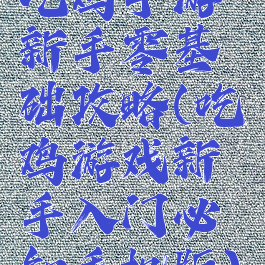 吃鸡手游
新手零基
础攻略(吃
鸡游戏新
手入门必